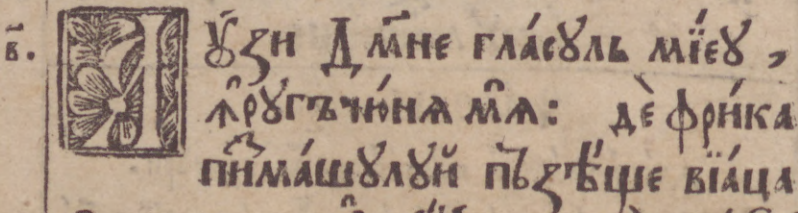 в҃. Аꙋ҆́зи Дм҃не гла́сꙋль мїе́ꙋ ,
ꙟ҆рꙋгъчю́нѧ мѧ̑: дѐ фри́ка
пиⷥма́шꙋлꙋй пъзѣ́ще вїа́ца